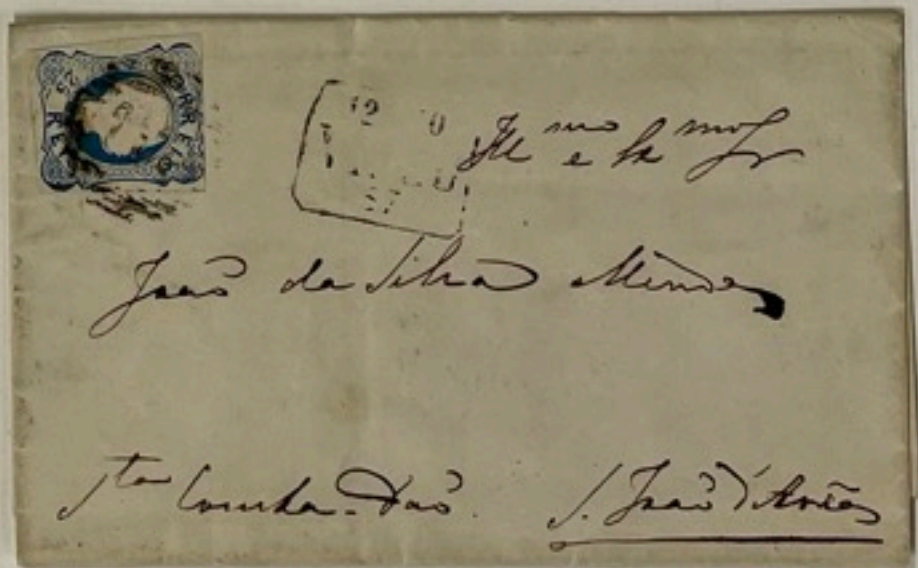 CORREIO
25 REIS
Ill mo e Ex mo Sr
João da Silva Mendes
Sta Comba-Dão. S. João d'Areias